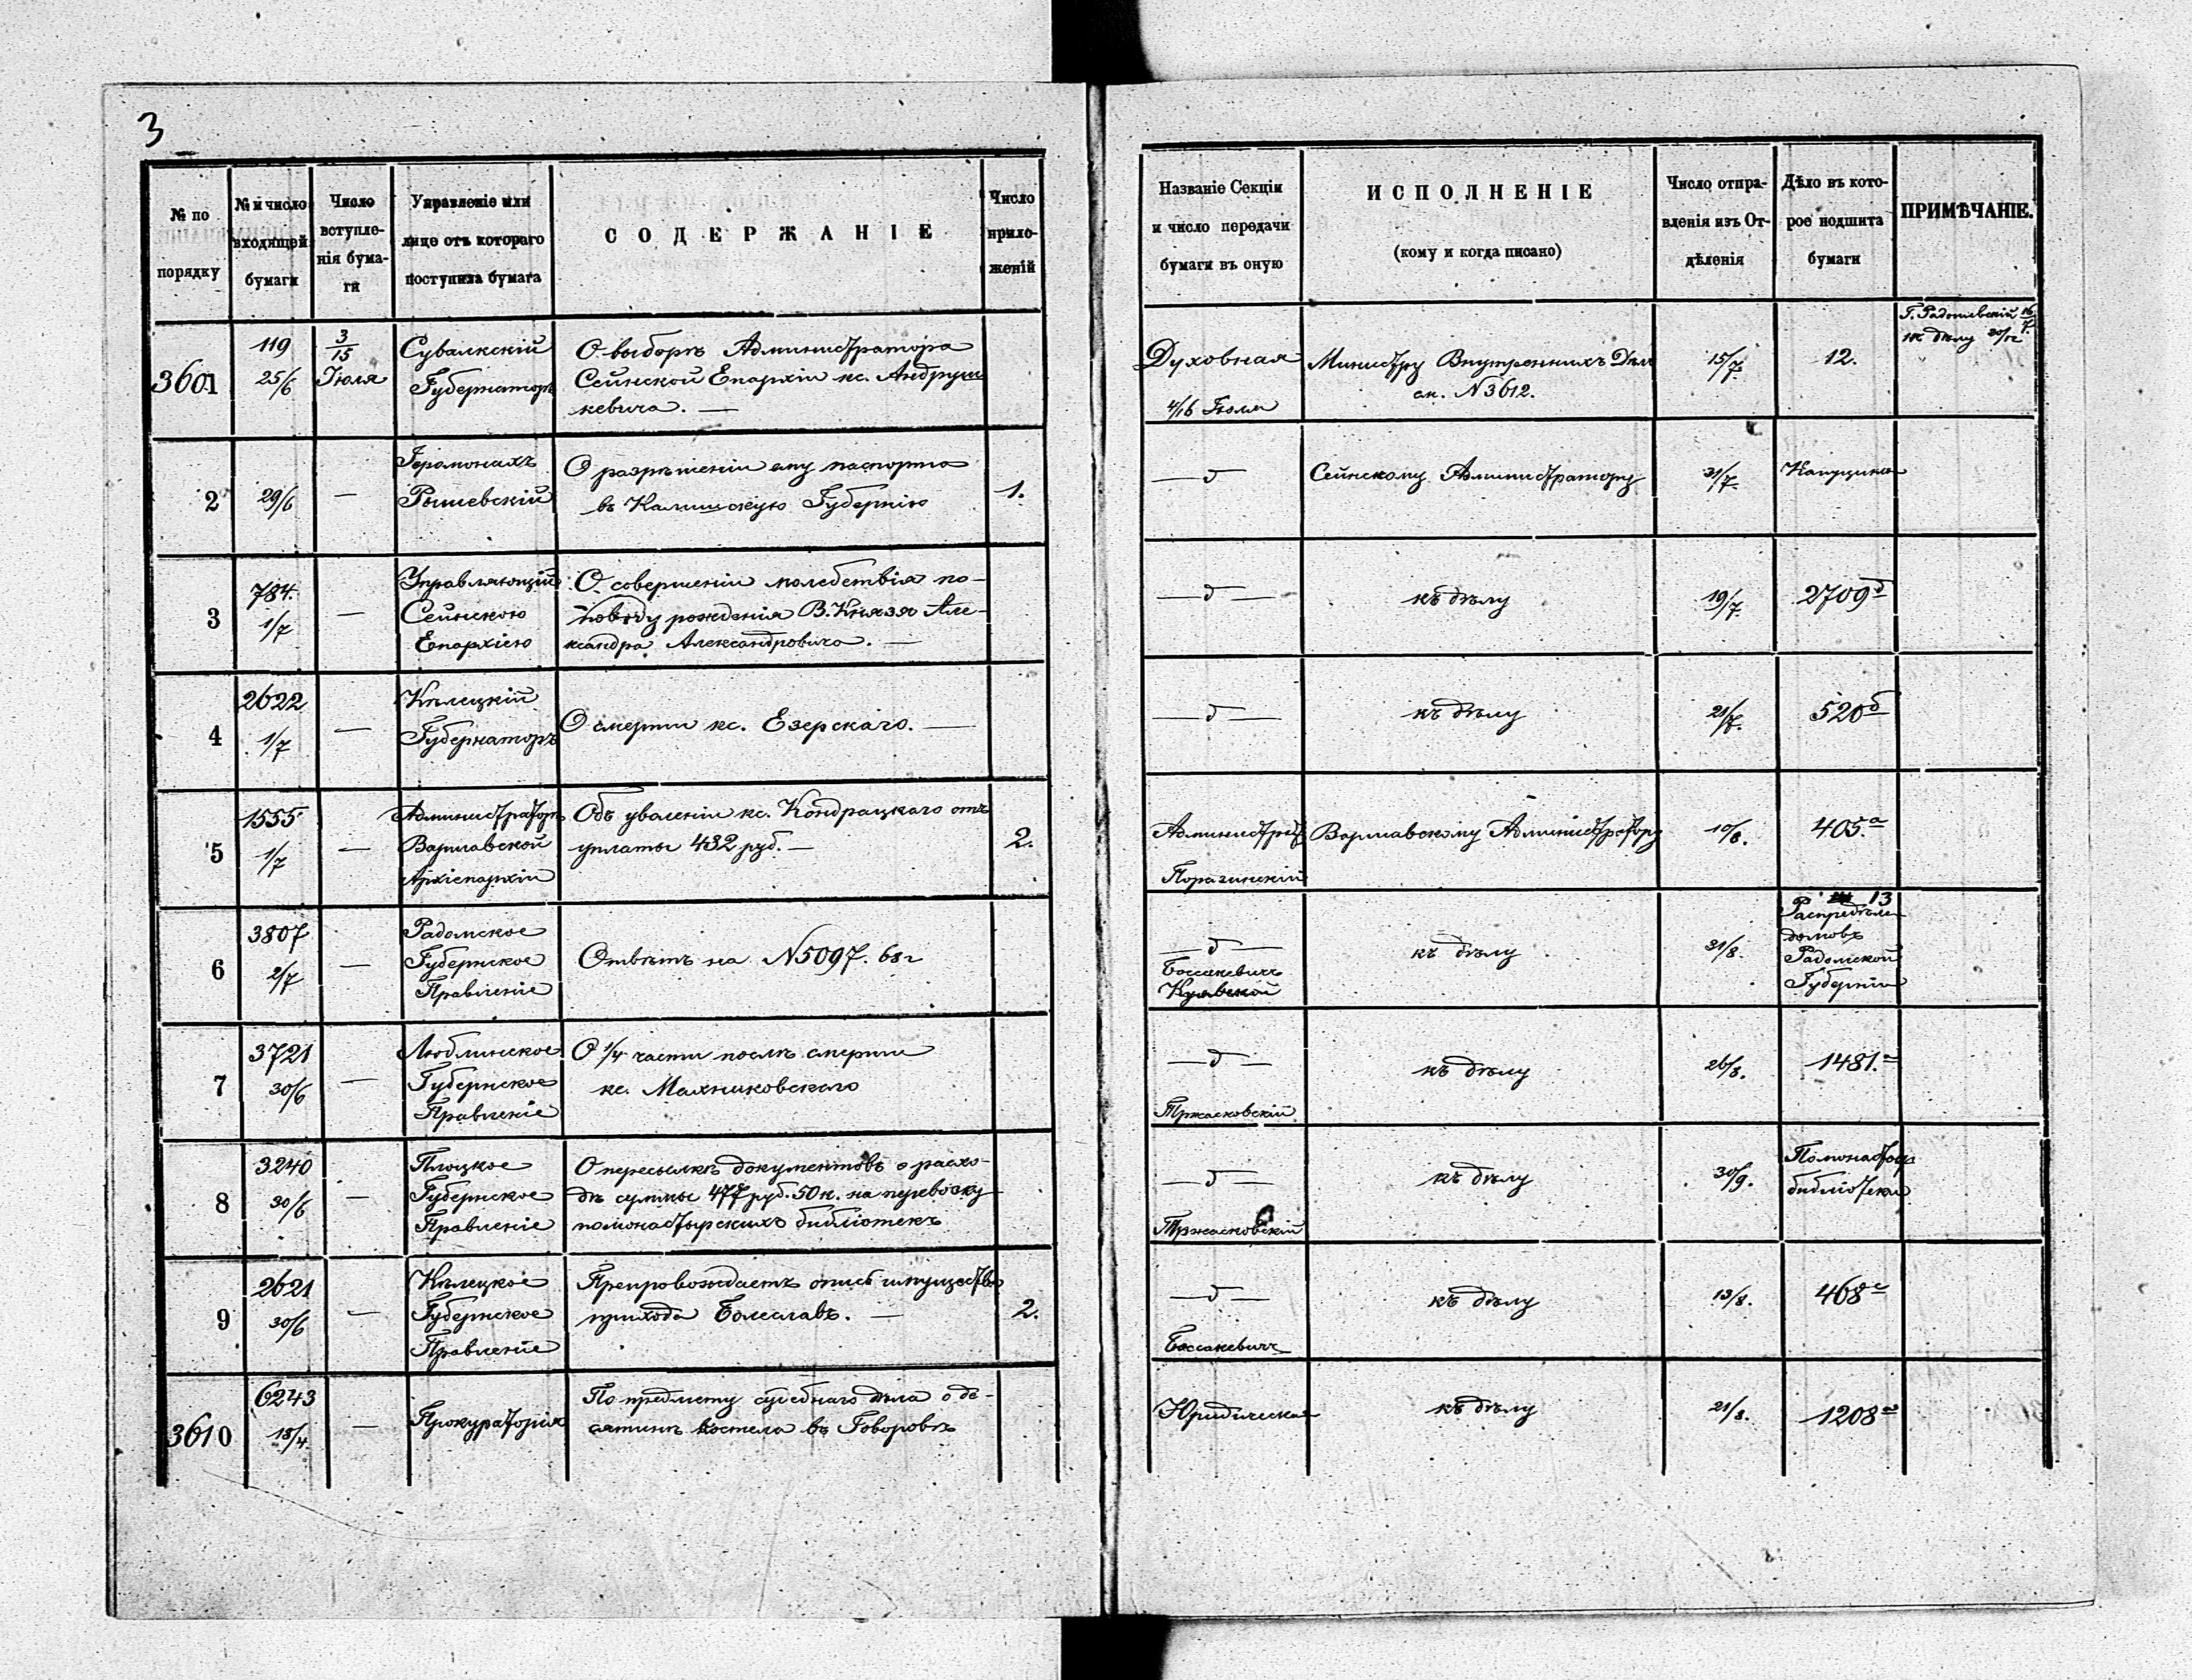 3
№ по порядку
№ и число входящей бумаги
Число вступленія бумаги
Управленіе или лице отъ котораго поступила бумага
СОДЕРЖАНІЕ
Число приложеній
Названіе Секціи и число передачи бумаги въ оную
ИСПОЛНЕНІЕ
(кому и когда писано)
Число отправленія изъ Отдѣленія
Дѣло въ которое подшита бумаги
ПРИМѢЧАНІЕ.
3601
119
25/6
3/15
Іюля
Сувалкскій
Губернаторъ
О выборѣ Администратора
Сейнской Епархіи кс. Андруш
кевича. —
Духовная
4/16 Іюля
Министру Внутреннихъ Дѣлъ
сн. N 3612.
15/7.
12.
къ дѣлу
2
29/6
—
Іеромонахъ
Рышевскій
О разрѣшеніи ему паспорта
въ Калишскую Губернію
1.
— д
Сейнскому Администратору
31/7.
3
784.
1/7
—
Управляющій
Сейнскою
Епархіею
О совершеніи молебствія по-
поводу рожденія В. Князя Але-
ксандра Александровича. —
— д —
къ дѣлу
19/7.
2709 д
4
2622
1/7
—
Кѣлецкій
Губернаторъ
О смерти кс. Езерскаго. —
— д —
къ дѣлу
21/7.
520 д
5
1555
1/7
—
Администраторъ
Варшавской
Архіепархіи
Объ уваленіи кс. Кондрацкаго отъ
уплаты 432 руб. —
2.
Варшавскому Администратору
10/8.
405. а
6
3807
2/7
—
Радомское
Губернское
Правленіе
Отвѣтъ на N 5097. 68 г
— д —
Боссакевичъ
къ дѣлу
31/8.
13
Распредѣле
домовъ
Радомской
Губерніи
7
3721
30/6
—
Люблинское
Губернское
Правленіе
О 1/4 части послѣ смерти
кс. Махниковскаго
— д —
Тржасковскій
къ дѣлу
26/8.
1481. а
8
3240
30/6
—
Плоцкое
Губернское
Правленіе
О пересылкѣ документовъ о расхо-
дѣ суммы 477 руб. 50 к. на перевозку
помонастырскихъ библіотекъ
— д —
Тржасковскій
къ дѣлу
30/9.
Помонастыр
библіотеки
9
2621
30/6
—
Кѣлецкое
Губернское
Правленіе
Препровождаетъ опись имущества
прихода Болеславъ. —
2.
— д —
Боссакевичъ
къ дѣлу
13/8.
468 с
3610
6243
18/4.
—
Прокураторія
По предмету судебнаго дѣла о де-
сятинѣ костела въ Говоровѣ
Юридическая
къ дѣлу
21/8.
1208 а